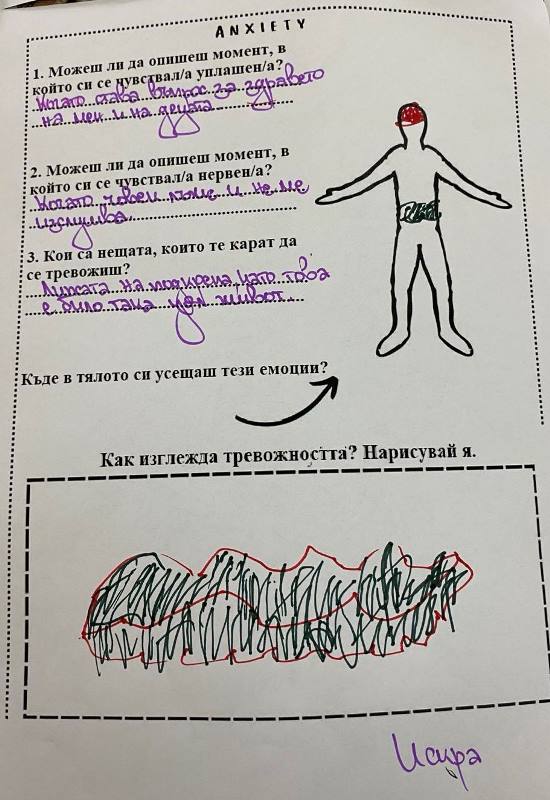 ANXIETY
1. Можеш ли да опишеш момент, в
който си се чувствал/а уплашен/а?
Когато става въпрос за здравето
на мен и на децата
2. Можеш ли да опишеш момент, в
който си се чувствал/а нервен/а?
Когато човек лъже и не ме
изслушва.
3. Кои са нещата, които те карат да
се тревожиш?
Липсата на подкрепа като това
е било така цял живот
Къде в тялото си усещаш тези емоции?
Как изглежда тревожността? Нарисувай я.